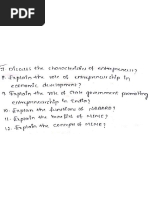 7. Discuss the characteristics of entrepreneurs?
8. Explain the role of entrepreneurship in
economic development?
9. Explain the role of State government promoting
entrepreneurship in India?
10. Explain the functions of NABARD?
11. Explain the benefits of MSME?
12. Explain the concept of MSME?